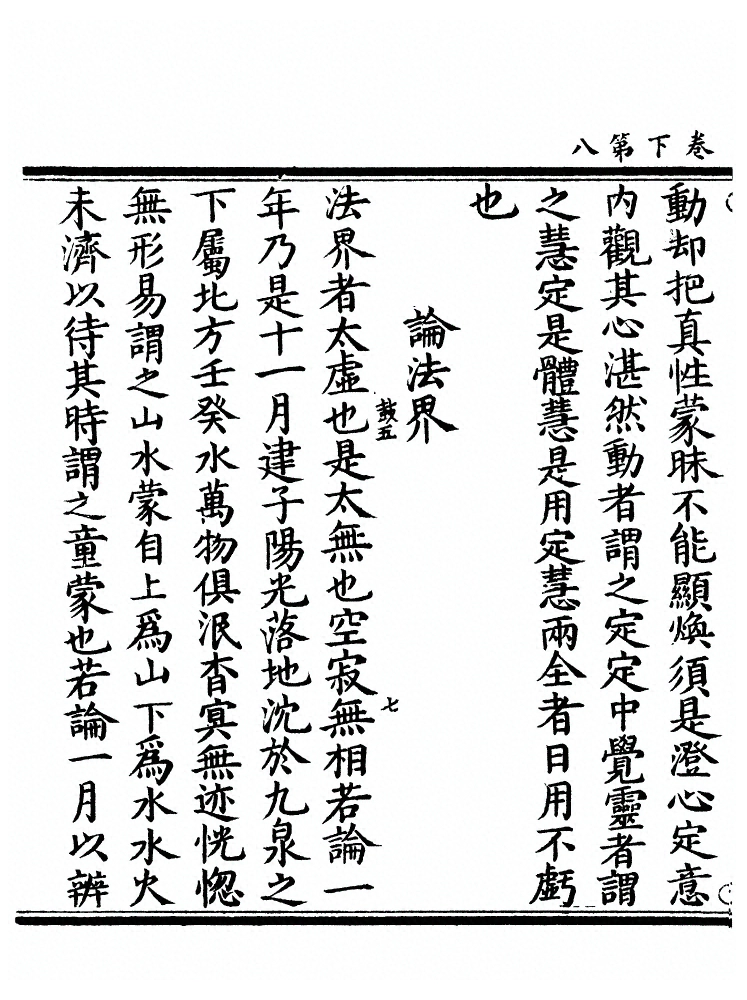 卷下第八
動却把真性蒙昧不能顯煥須是澄心定意
内觀其心湛然動者謂之定定中覺靈者謂
之慧定是體慧是用定慧兩全者日用不虧
也
論法界
鼓五
七
法界者太虛也是太無也空寂無相若論一
年乃是十一月建子陽光落地沈於九泉之
下屬北方壬癸水萬物俱泯杳冥無迹恍惚
無形易謂之山水蒙自上爲山下爲水水火
未濟以待其時謂之童蒙也若論一月以辨